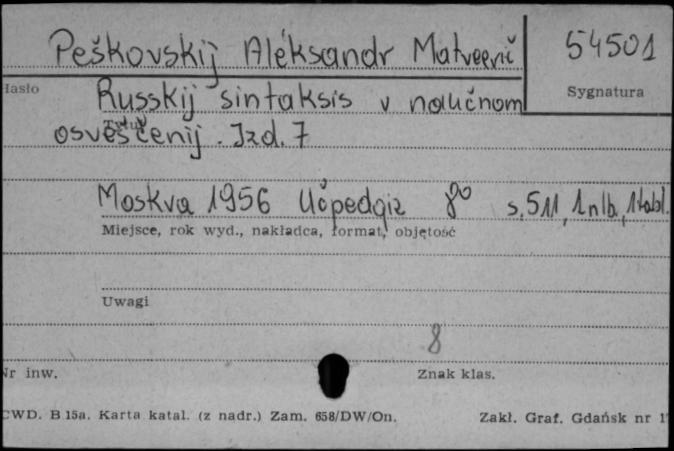 Peškovskij Aleksandr Matveevič 54501
Hasło Sygnatura
Russkij sintaksis v naučnom
Tytuł
osveščenij. Izd. 7
Moskva 1956 Učpedgiz 8° s. 511, 1 nlb, 1 tabl.
Miejsce, rok wyd., nakładca, format, objętość
Uwagi
8
Nr inw. Znak klas.
CWD. B 15a. Karta katal. (z nadr.) Zam. 658/DW/On. Zakł. Graf. Gdańsk nr 1